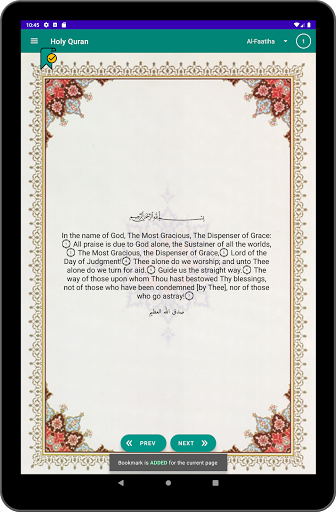 10:45
Holy Quran
Al-Faatiha
1
In the name of God, The Most Gracious, The Dispenser of Grace:
All praise is due to God alone, the Sustainer of all the worlds,
The Most Gracious, the Dispenser of Grace, Lord of the
Day of Judgment! Thee alone do we worship; and unto Thee
alone do we turn for aid. Guide us the straight way. The
way of those upon whom Thou hast bestowed Thy blessings,
not of those who have been condemned [by Thee], nor of those
who go astray!
صدق الله العظيم
PREV
NEXT
Bookmark is ADDED for the current page